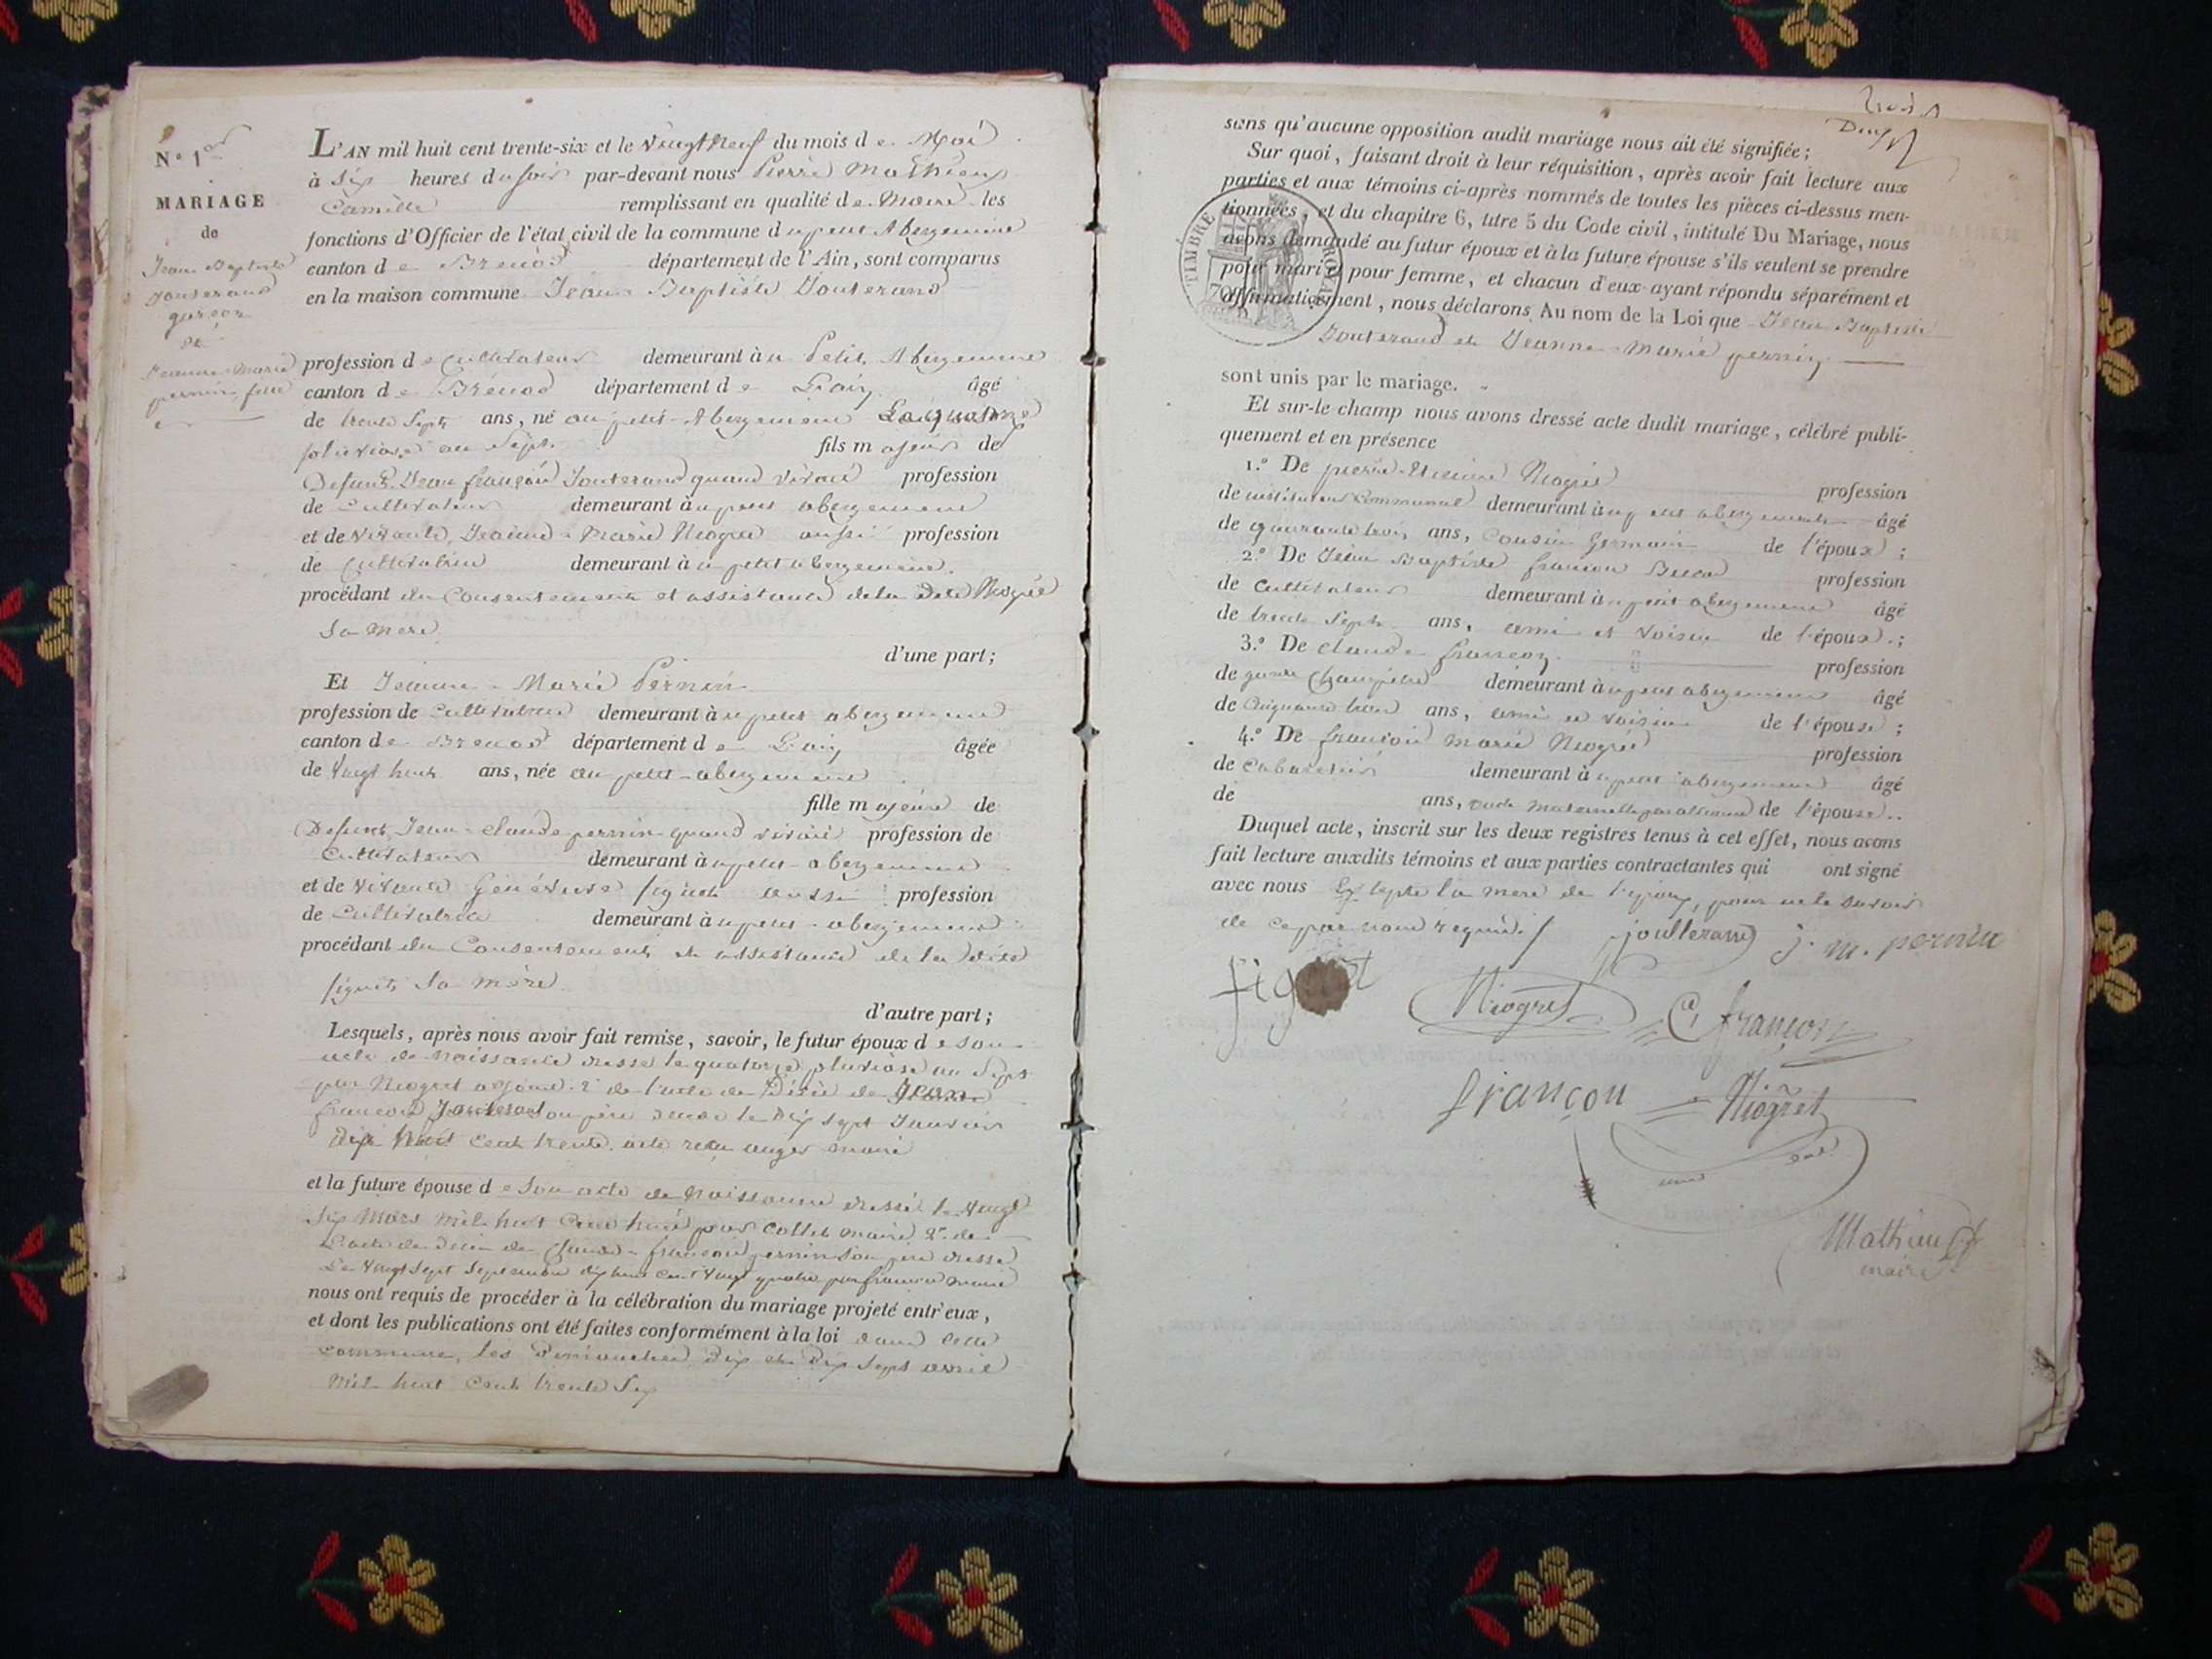 N° 1er
MARIAGE
de
Jean Baptiste
Jouterand
garçon
et
Jeanne-Marie
pernin fille
L'AN mil huit cent trente-six et le vingt neuf du mois de Mai
à Six heures du soir par-devant nous Pierre Mathieux
Camille remplissant en qualité de Maire les
fonctions d'Officier de l'état civil de la commune du petit Abergement
canton de Brenod département de l'Ain, sont comparus
en la maison commune Jean Baptiste Jouterand
profession de Cultivateur demeurant à u Petit Abergement
canton de Brénod département de L'ain âgé
de trente Sept ans, né au petit-Abergement Le quatorze
pluviose an Sept fils majeur de
Defunt Jean françois Jouterand quand vivait profession
de Cultivateur demeurant à u petit abergement
et de vivante Jeanne-Marie Niogret aussi profession
de Cultivatrice demeurant à u petit abergement.
procédant du Consentement et assistance de la dite Niogret
Sa mere
d'une part;
Et Jeanne-Marie Pernin
profession de Cultivatrice demeurant à u petit abergement
canton de Brenod département de L'ain âgée
de vingt huit ans, née au petit-abergement
fille majeure de
Defunt Jean-claude pernin quand vivait profession de
Cultivateur demeurant à u petit-abergement
et de vivante figuet aussi profession
de Cultivatrice demeurant à u petit-abergement
procédant du Consentement et assistance de la dite
figuet Sa mère
d'autre part;
Lesquels, après nous avoir fait remise, savoir, le futur époux de Son
acte de Naissance dressé le quatorze pluviose an Sept
par Niogret 2° de l'acte de Décès de Jean
françois Jouterand Son père dressé le Dix Sept Janvier
Dix huit Cent trente. acte reçu auger maire
et la future épouse de Son acte de Naissance dressé le vingt
Six Mars Mil huit Cent huit par Collet maire 2° de
L'acte de Décès de Claude-françois pernin Son père dressé
Le vingt Sept Septembre dix huit cent vingt quatre par françon maire
nous ont requis de procéder à la célébration du mariage projeté entr'eux,
et dont les publications ont été faites conformément à la loi dans cette
commune, les Dimanches Dix et Dix Sept avril
Mil huit Cent trente Six
Deux
sans qu'aucune opposition audit mariage nous ait été signifiée;
Sur quoi, faisant droit à leur réquisition, après avoir fait lecture aux
parties et aux témoins ci-après nommés de toutes les pièces ci-dessus men-
tionnées, et du chapitre 6, titre 5 du Code civil, intitulé Du Mariage, nous
avons demandé au futur époux et à la future épouse s'ils veulent se prendre
pour mari et pour femme, et chacun d'eux ayant répondu séparément et
affirmativement, nous déclarons Au nom de la Loi que Jean Baptiste
Jouterand et Jeanne-Marie pernin
TIMBRE ROYAL
70
sont unis par le mariage.
Et sur-le champ nous avons dressé acte dudit mariage, célébré publi-
quement et en présence
1.° De pierre-Etienne Niogret profession
de instituteur Communal demeurant à u petit abergement âgé
de quarante trois ans, Cousin Germain de l'époux;
2.° De Jean Baptiste françon profession
de Cultivateur demeurant à u petit abergement âgé
de trente Sept ans, ami et voisin de l'époux;
3.° De claude françon profession
de garde Champêtre demeurant à u petit abergement âgé
de Cinquante trois ans, ami et voisin de l'épouse;
4.° De françois marie Niogret profession
de Cabaretier demeurant à u petit abergement âgé
de ans, oncle Maternelle par alliance de l'épouse.
Duquel acte, inscrit sur les deux registres tenus à cet effet, nous avons
fait lecture auxdits témoins et aux parties contractantes qui ont signé
avec nous Excepté la mere de l'epoux, pour ne le savoir
de ce par nous requis
joutterand J. M. pernin
Niogret Cl françon
françon Niogret
Mathieux
maire